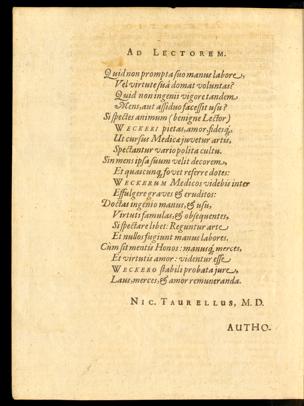 AD LECTOREM.
Quid non prompta suo manus labore,
Vel virtute suâ domat voluntas?
Quid non ingenii vigor et tandem
Mens, aut assiduo facessit usu?
Si spectes animum (benigne Lector)
WECKERI pietas, amor, fidesq́,
Ut cursus Medica juvetur artis,
Spectantur vario polita cultu.
Sin mens ipsa suum velit decorem,
Et quascunq, fovet referre dotes:
WECKERUM Medicos videbis inter
Effulgere graves & eruditos:
Doctas ingenio manus, & usu,
Virtuti famulas, & obsequentes,
Si spectare libet: Reguntur arte
Et nullos fugiunt manus labores.
Cùm sit mentis Honos: manusq́, merces,
Et virtutis amor: videntur esse
WECKERO stabili probata jure,
Laus, merces, & amor remuneranda.
NIC. TAURELLUS, M.D.
AUTHO-